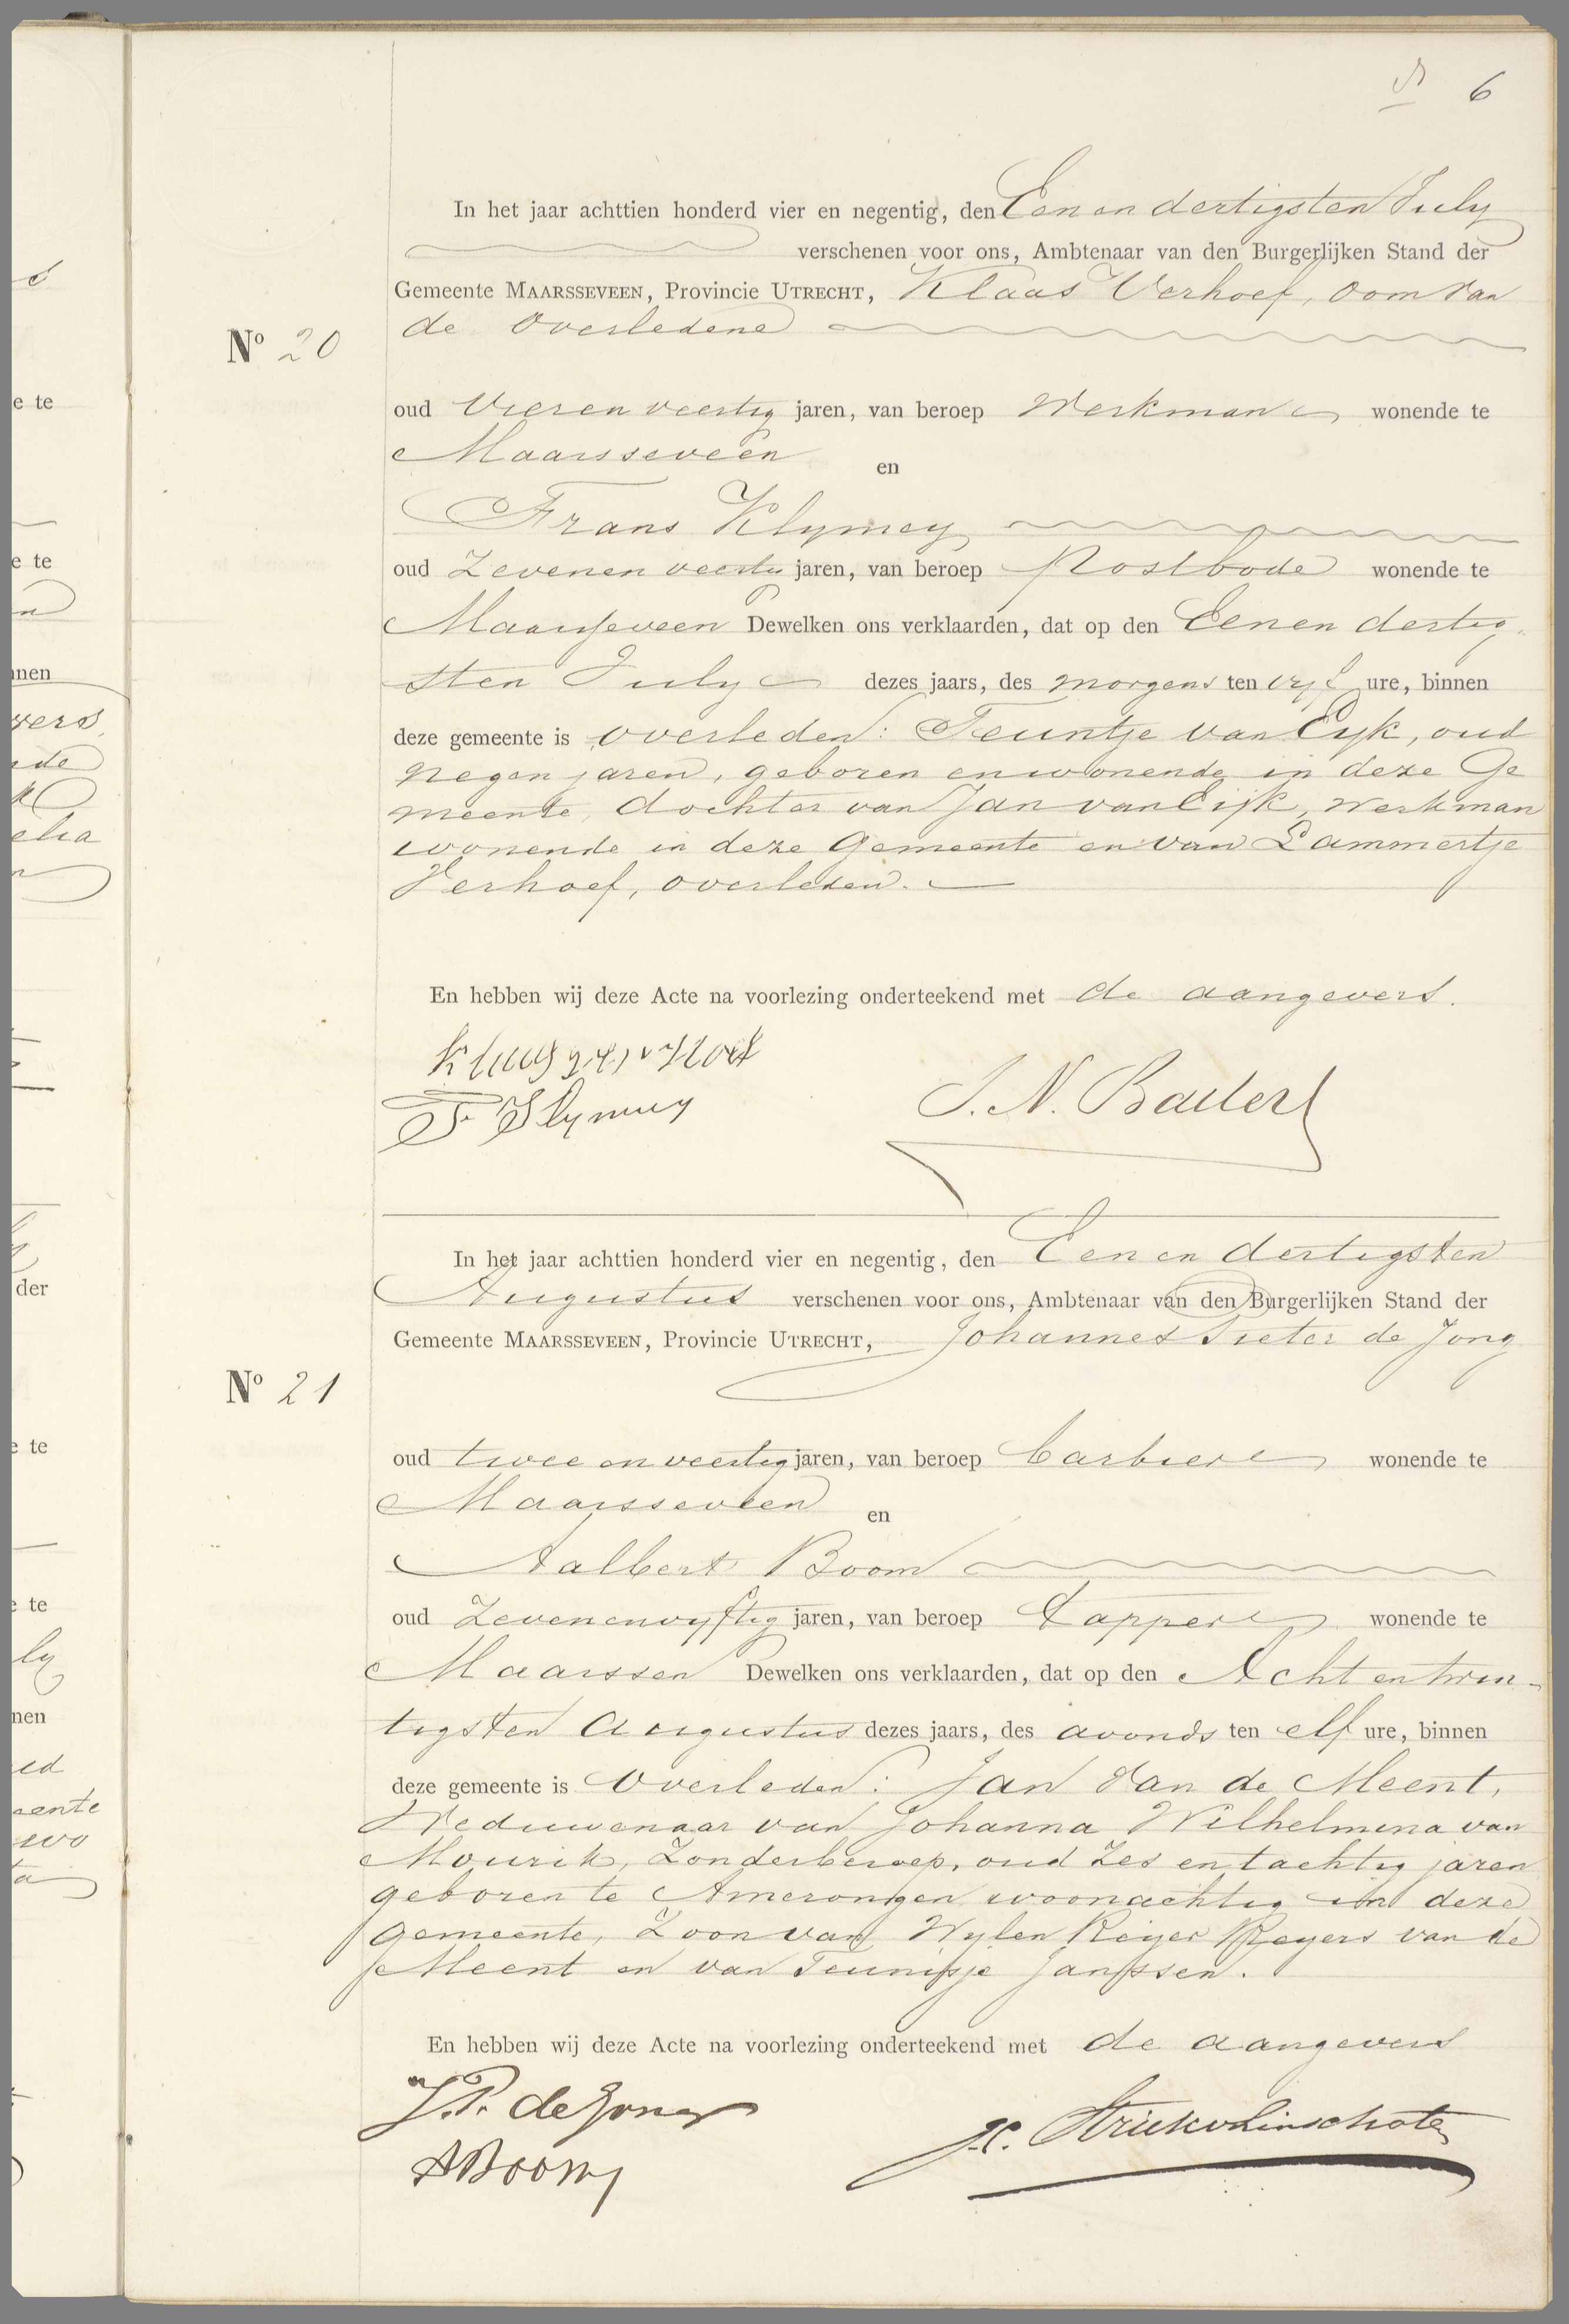 6
In het jaar achttien honderd vier en negentig, den Een en dertigsten July
verschenen voor ons, Ambtenaar van den Burgerlijken Stand der
Gemeente MAARSSEVEEN, Provincie UTRECHT, Klaas Verhoef, oom van
de overledene
No 20
oud vier en veertig jaren, van beroep Werkman wonende te
Maarsseveen
en
Frans Klymey
oud Zeven en veertig jaren, van beroep Postbode wonende te
Maarsseveen Dewelken ons verklaarden, dat op den Eenen dertig
sten July dezes jaars, des morgens ten vyf ure, binnen
deze gemeente is overleden: Teuntje van Eyk, oud
negen jaren, geboren en wonende in deze Ge
meente, dochter van Jan van Eijk, werkman
wonende in deze gemeente en van Lammertje
Verhoef, overleden.
En hebben wij deze Acte na voorlezing onderteekend met de aangevers.
Klaas Verhoef
F. Klymey
J. N. Bader
In het jaar achttien honderd vier en negentig, den Een en dertigsten
Augustus verschenen voor ons, Ambtenaar van den Burgerlijken Stand der
Gemeente MAARSSEVEEN, Provincie UTRECHT, Johannes Pieter de Jong
No 21
oud twee en veertig jaren, van beroep barbier wonende te
Maarsseveen
en
Aalbert Boom
oud Zevenenvyftig jaren, van beroep Tapper wonende te
Maarssen Dewelken ons verklaarden, dat op den Acht en twin-
tigsten Augustus dezes jaars, des avonds ten elf ure, binnen
deze gemeente is overleden: Jan van de Meent,
Weduwenaar van Johanna Wilhelmina van
Mourik, Zonder beroep, oud Zes en tachtig jaren
geboren te Amerongen woonachtig in deze
gemeente, Zoon van Wylen Reyer Reyers van de
Meent en van Teunisje Janssen.
En hebben wij deze Acte na voorlezing onderteekend met de aangevers
J.P. de Jong
A Boom